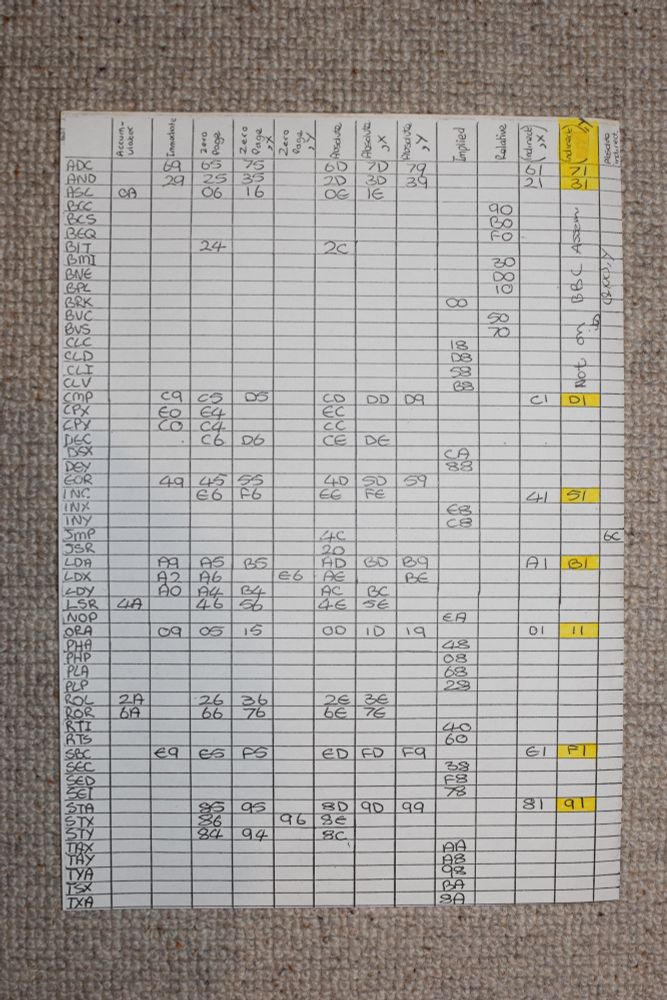 Accum-ulator Immediate Zero Page Zero Page ,X Zero Page, Y Absolute Absolute ,X Absolute, Y Implied Relative (Indirect, X) (Indirect),Y Absolute Indirect
ADC 69 65 75 6D 7D 79 61 71
AND 29 25 35 2D 3D 39 21 31
ASL 0A 06 16 0E 1E
BCC 90
BCS B0
BEQ F0
BIT 24 2C
BMI 30
BNE D0
BPL 10
BRK 00
BVC 50
BVS 70
CLC 18
CLD D8
CLI 58
CLV B8
Not on BBC Assem
CMP C9 C5 D5 CD DD D9 C1 D1
CPX E0 E4 EC
CPY C0 C4 CC
DEC C6 D6 CE DE
DEX CA
DEY 88
EOR 49 45 55 4D 5D 59
INC E6 F6 EE FE 41 51
INX E8
INY C8
JMP 4C 6C
JSR 20
LDA A9 A5 B5 AD BD B9 A1 B1
LDX A2 A6 E6 AE BE
LDY A0 A4 B4 AC BC
LSR 4A 46 56 4E 5E
NOP EA
ORA 09 05 15 0D 1D 19 01 11
PHA 48
PHP 08
PLA 68
PLP 28
ROL 2A 26 36 2E 3E
ROR 6A 66 76 6E 7E
RTI 40
RTS 60
SBC E9 E5 F5 ED FD F9 E1 F1
SEC 38
SED F8
SEI 78
STA 85 95 8D 9D 99 81 91
STX 86 96 8E
STY 84 94 8C
TAX AA
TAY A8
TYA 98
TSX BA
TXA 8A